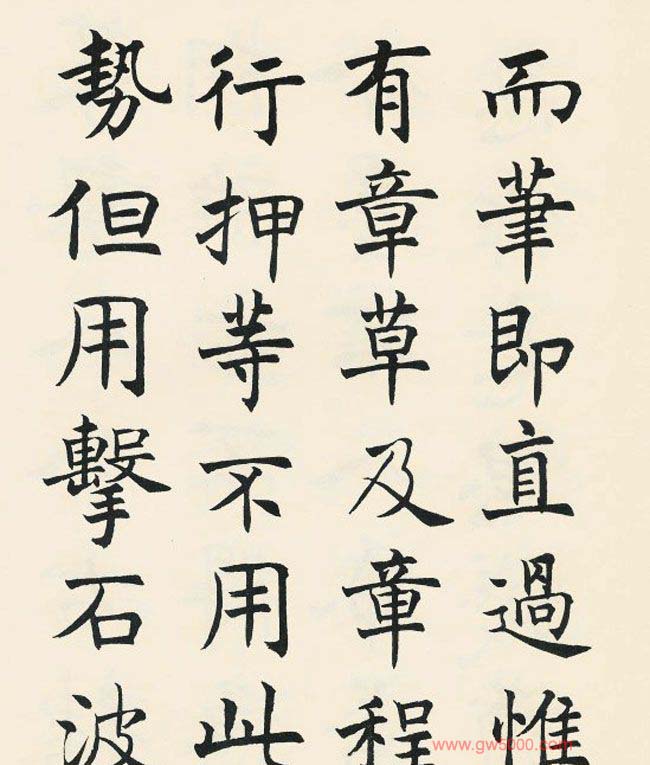 而筆即直過惟
有章草及章程
行押等不用此
勢但用擊石波
www.gw5000.com